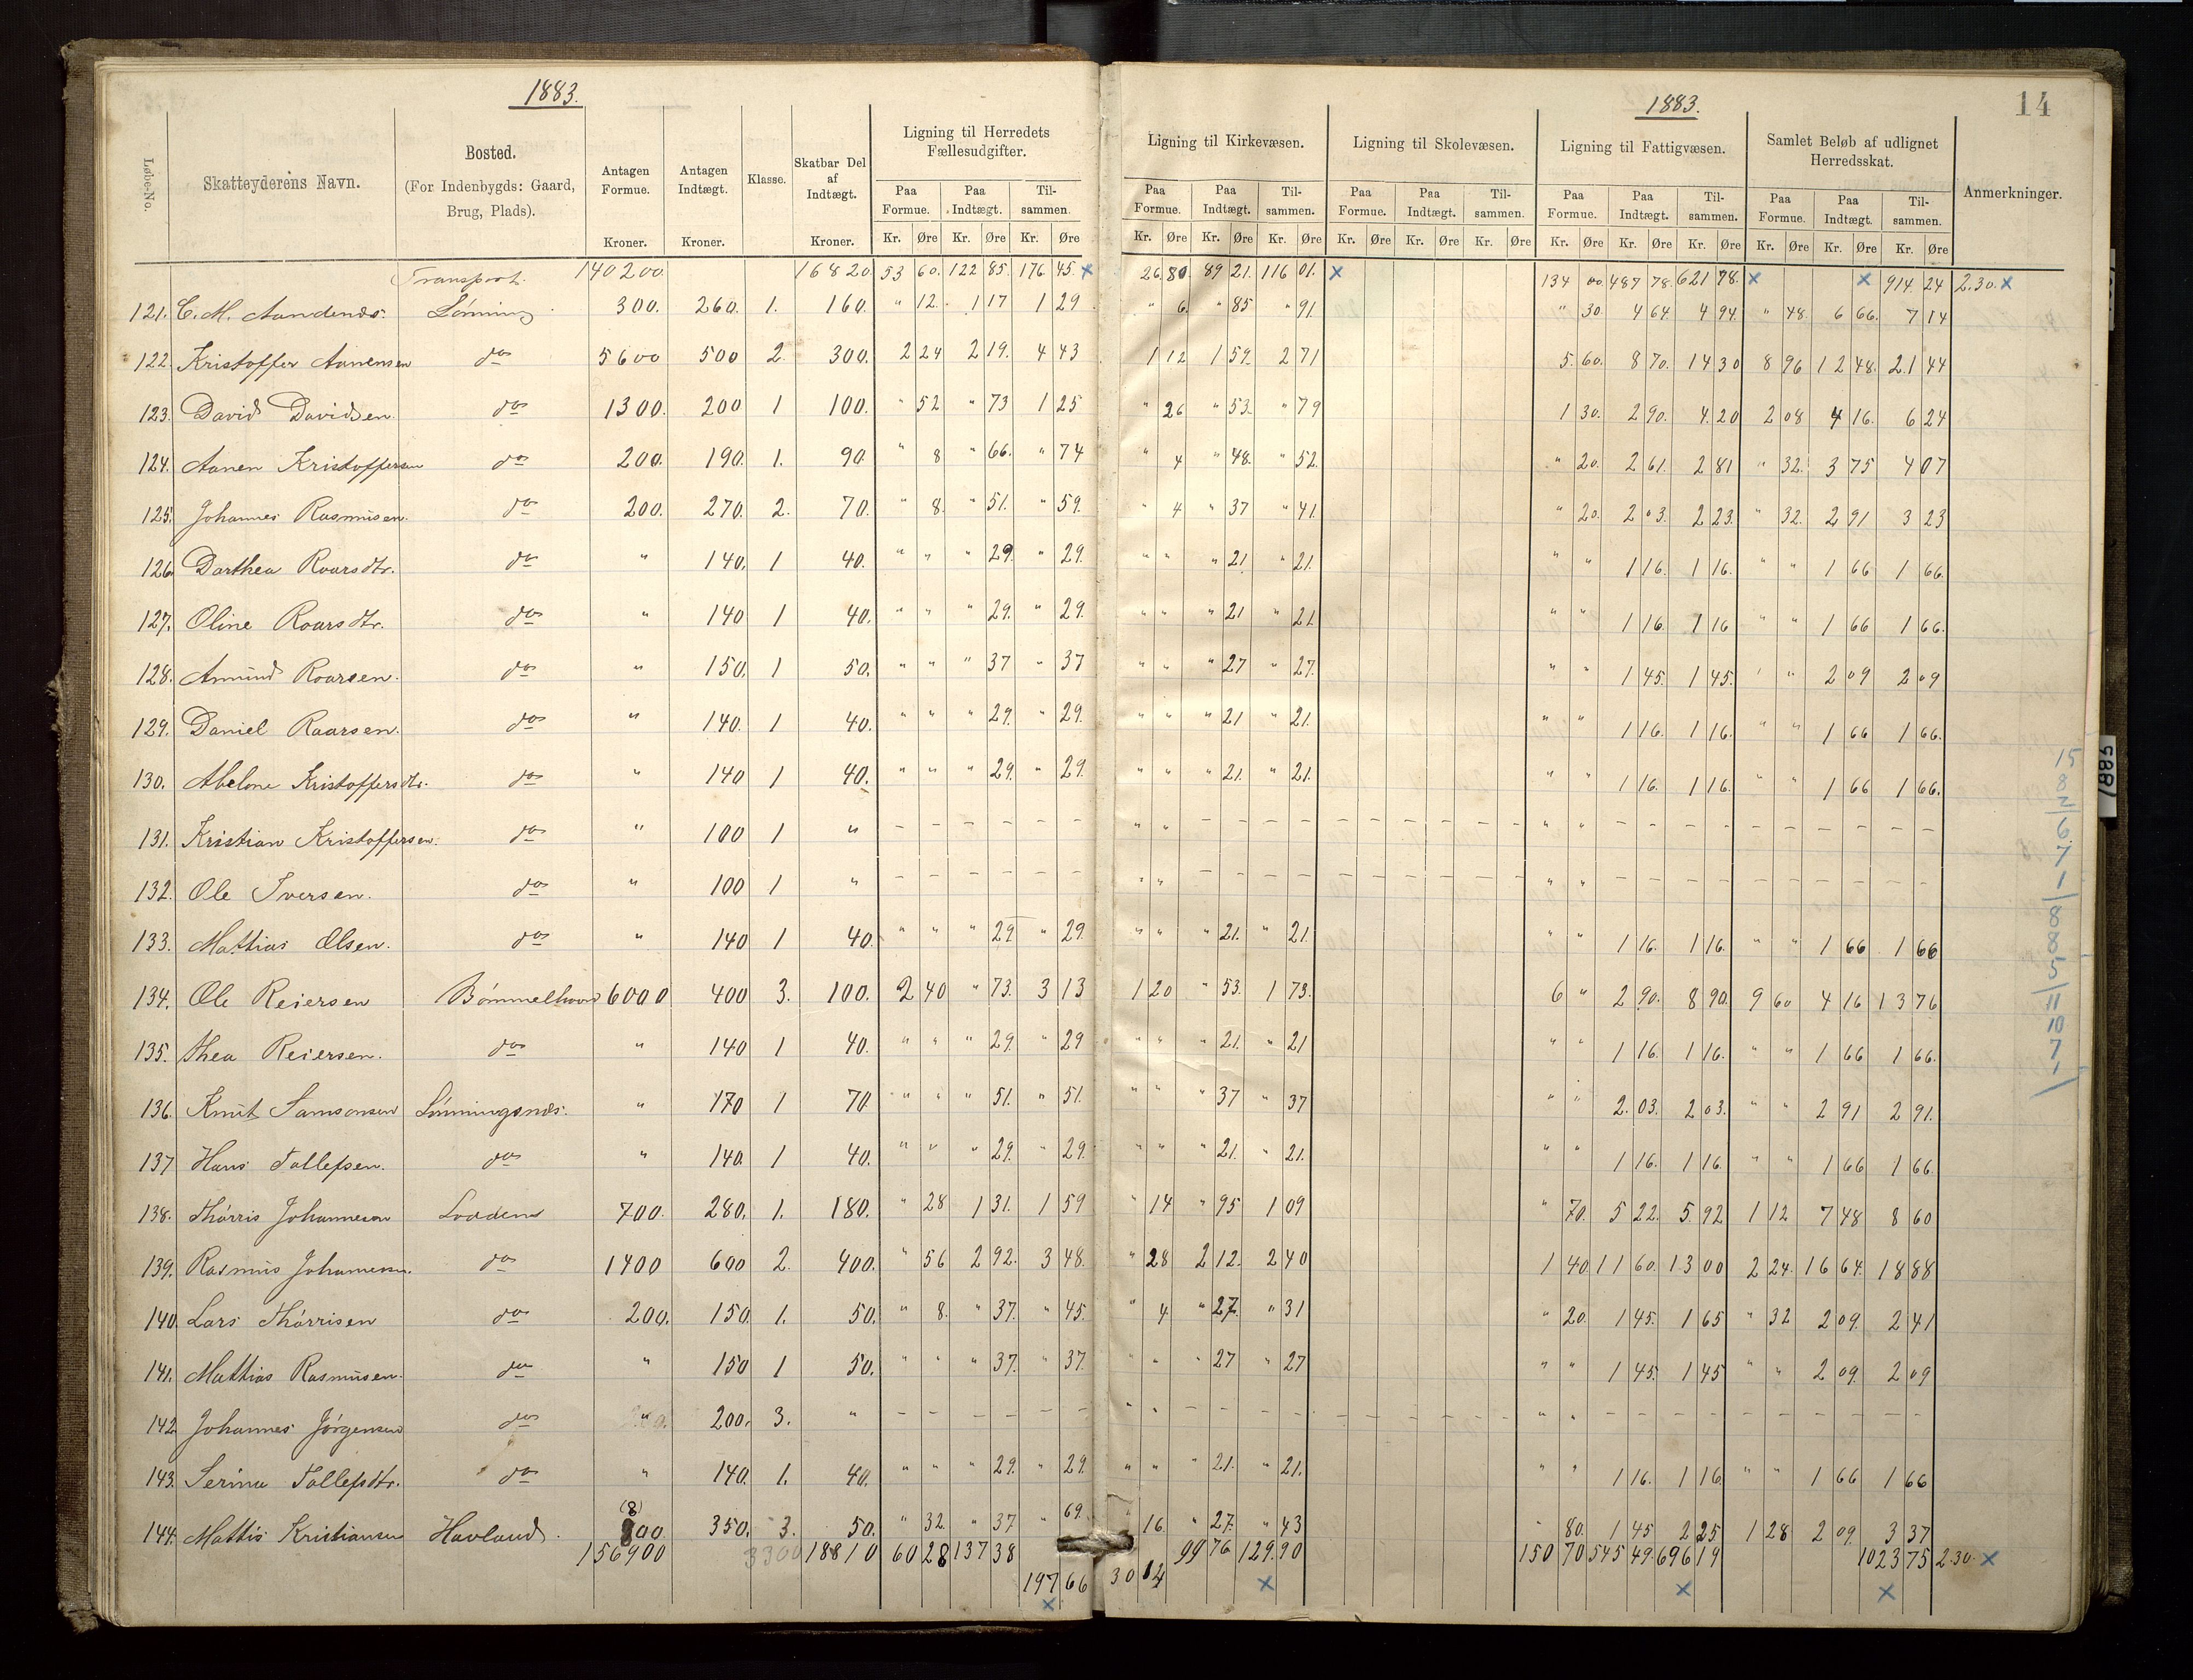 1883.
1883.
14
Løbe-No. Skatteyderens Navn. Bosted. (For Indenbygds: Gaard, Brug, Plads). Antagen Formue. Kroner. Antagen Indtægt. Kroner. Klasse. Skatbar Del af Indtægt. Kroner. Ligning til Herredets Fællesudgifter. Ligning til Kirkevæsen. Ligning til Skolevæsen. Ligning til Fattigvæsen. Samlet Beløb af udlignet Herredsskat. Anmerkninger.
Paa Formue. Paa Indtægt. Tilsammen. Paa Formue. Paa Indtægt. Tilsammen. Paa Formue. Paa Indtægt. Tilsammen. Paa Formue. Paa Indtægt. Tilsammen. Paa Formue. Paa Indtægt. Tilsammen.
Kr. Øre Kr. Øre Kr. Øre Kr. Øre Kr. Øre Kr. Øre Kr. Øre Kr. Øre Kr. Øre Kr. Øre Kr. Øre Kr. Øre Kr. Øre Kr. Øre Kr. Øre
Transport. 140200. 16820. 53 60. 122 85. 176 45. x 26 80 89 21. 116 01. x 134 00. 487 78. 621 78. x x 914 24 2.30. x
121. C. M. Lønning 300. 260. 1. 160. " 12. 1 17 1 29 " 6. " 85 " 91 " 30. 4 64. 4 94. " 48. 6 66. 7 14
122. Kristoffer Aanensen do 5600 500 2. 300. 2 24 2 19. 4 43 1 12 1 59. 2 71 5. 60. 8 70. 14 30 8 96 12 48. 21 44
123. David Davidsen. do 1300. 200 1 100. " 52 " 73 1 25 " 26 " 53. " 79 1 30. 2 90. 4. 20 2 08 4 16. 6 24
124. Aanen Kristoffersen do 200. 190. 1. 90. " 8 " 66. " 74 " 4 " 48. " 52. " 20. 2 61. 2 81 " 32. 3 75 4 07
125. Johannes Rasmusen. do 200. 270. 2. 70. " 8. " 51. " 59. " 4 " 37 " 41. " 20. 2 03. 2 23. " 32. 2 91 3 23
126. Dorthea Roarsdtr. do " 140. 1 40. " " " 29. " 29. " " " 21. " 21. " " 1 16. 1 16. " " 1 66 1 66.
127. Oline Roarsdtr. do " 140 1 40. " " " 29. " 29. " " " 21 " 21 " " 1 16. 1 16 " " 1 66 1 66.
128. Amund Roarsen. do " 150. 1 50. " " " 37 " 37 " " " 27 " 27. " " 1 45. 1 45. " " 2 09 2 09
129. Daniel Roarsen. do " 140. 1 40. " " " 29. " 29. " " " 21 " 21. " " 1 16. 1 16. " " 1 66 1 66.
130. Abelone Kristoffersdtr. do " 140 1 40. " " " 29. " 29. " " " 21. " 21. " " 1 16. 1 16. " " 1 66 1 66.
131. Kristian Kristoffersen. do " 100 1 " – – – – – – " " – – – – – – – – – – " " – – – – – – – – – –
132. Ole Iversen. do " 100 1 " – – – – – – " " – – – – – – – – – – " " – – – – – – – – – –
133. Mathias Olsen. do " 140 1 40. " " " 29 " 29. " " " 21. " 21. " " 1 16. 1 16. " " 1 66 1 66
134. Ole Reiersen Bømmelhavn 6000 400 3. 100. 2 40 " 73. 3 13 1 20 " 53. 1 73. 6 " 2 90. 8 90. 9 60 4 16 13 76
135. Thea Reiersen. do " 140 1 40. " " " 29. " 29 " " " 21. " 21 " " 1 16. 1 16. " " 1 66 1 66.
136. Knut Samsonsen Lønningsnæs. " 170 1 70 " " " 51. " 51. " " " 37 " 37 " " 2. 03. 2 03. " " 2 91 2 91.
137 Hans Tollefsen. do " 140. 1 40. " " " 29. " 29. " " " 21. " 21. " " 1 16. 1 16. " " 1 66 1 66.
138. Thørris Johannesen Lodden 700. 280. 1. 180. " 28 1 31. 1 59 " 14 " 95 1 09 " 70. 5 22. 5. 92 1 12 7 48 8 60
139. Rasmus Johannesen. do 1400 600 2. 400. " 56 2 92. 3 48. " 28 2 12. 2 40 1 40 11 60. 13 00 2 24. 16 64. 18 88
140. Lars Thørrisen do 200. 150. 1. 50. " 8. " 37. " 45. " 4 " 27. " 31 " 20. 1 45. 1 65 " 32 2 09. 2 41
141. Mathias Rasmusen. do " 150 1 50. " " " 37. " 37. " " " 27 " 27 " " 1 45. 1 45 " " 2 09. 2 09
142. Johannes Jørgensen do " 200. 3. " – – – – – – " " – – – – – – – – – – " " – – – – – – – – – –
143. Serina Tollefsdtr. do " 140. 1. 40. " " " 29. " 29. " " " 21. " 21. " " 1 16. 1 16 " " 1 66 1 66
144. Mathis Kristiansen Havland. (8) 800. 350. 3. 50. " 32. " 37 " 69. " 16. " 27. " 43 " 80. 1 45 2 25 1 28 2 09. 3 37
156900 3300 18810 60 28 137 38 99 76 129.90 150 70 545 49. 696 19 1023 75 2.30. x
197 66 30 14 x x x
x
15 8 2/6 7 1/8 8 5/11 10 7/
1883